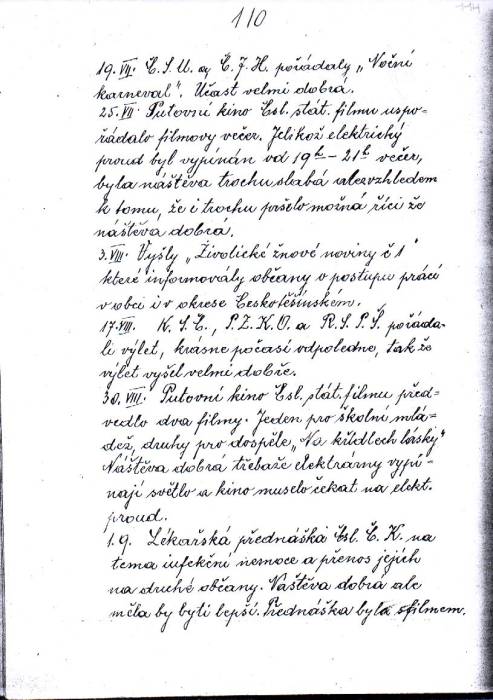 110
19. VII. Č.S.M. a Č.J.H. pořádaly „Noční
karneval". Účast velmi dobrá.
25. VII. Putovní kino Čsl. stát. filmu uspo=
řádalo filmovy večer. Jelikož elektrický
proud byl vypínán od 19h – 21h večer,
byla náštěva trochu slabá ale vzhledem
k tomu, že i trochu pršelo možná říci že
náštěva dobra.
3. VIII. Vyšly „Živolické žnové noviny č 1"
které informovály občany o postupu prácí
v obci i v okrese Českotěšínském.
17. VIII. K.S.Č., P.Z.K.O. a R.S.P.Š. pořáda=
li výlet, krásne počasí odpoledne, tak že
výlet vyšel velmi dobře.
30. VIII. Putovní kino Čsl. stát. filmu před=
vedlo dva filmy. Jeden pro školní mlá=
dež, druhy pro dospěle „Na křídlech lásky"
Náštěva dobrá třebaže elektrárny vypí=
nají světlo a kino muselo čekat na elekt.
proud.
1. 9. Lékařská přednáška Čsl. Č. K. na
tema infekční nemoce a přenos jejich
na druhé občany. Náštěva dobrá ale
měla by byti lepší. Přednáška byla s filmem.